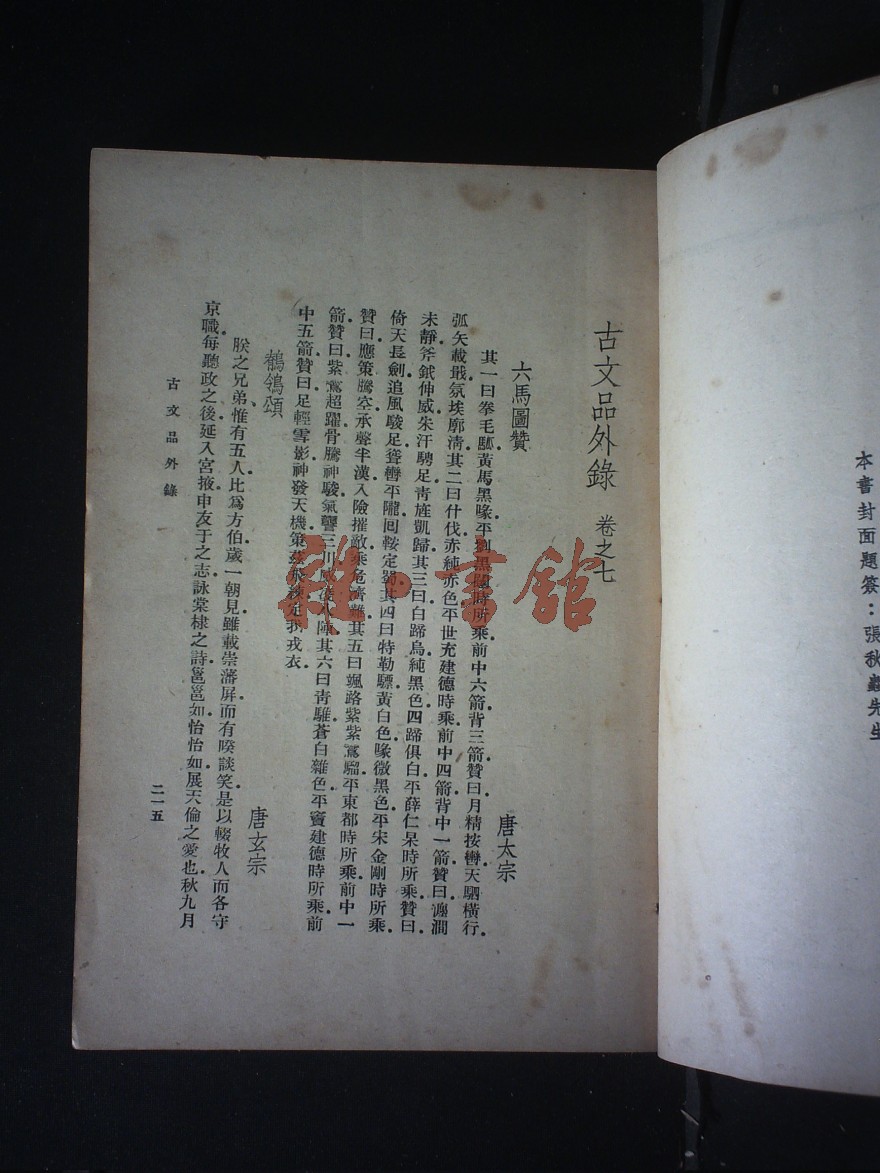 本書封面題簽：張秋蟲先生
古文品外錄 卷之七
六馬圖贊 唐太宗
其一曰拳毛騧黃馬黑喙平劉黑闥時所乘前中六箭背三箭贊曰月精按轡天駟橫行
弧矢載戢氛埃廓淸其二曰什伐赤純赤色平世充建德時乘前中四箭背中一箭贊曰瀍澗
未靜斧鉞伸威朱汗騁足靑旌凱歸其三曰白蹄烏純黑色四蹄俱白平薛仁杲時所乘贊曰
倚天長劍追風駿足聳轡平隴回鞍定蜀其四曰特勒驃黃白色喙微黑色平宋金剛時所乘
贊曰應策騰空承聲半漢入險摧敵乘危濟難其五曰颯路紫紫鷰騮平東都時所乘前中一
箭贊曰紫鷰超躍骨騰神駿氣讋三川威凌八陣其六曰靑騅蒼白雜色平竇建德時所乘前
中五箭贊曰足輕雪影神發天機策茲飛練定我戎衣
鶺鴒頌 唐玄宗
朕之兄弟惟有五人比爲方伯歲一朝見雖載崇藩屏而有暌談笑是以輟牧人而各守
京職每聽政之後延入宮掖申友于之志詠棠棣之詩邕邕如怡怡如展天倫之愛也秋九月
古文品外錄
二一五
雜·書館